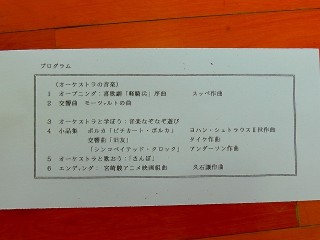 プログラム
(オーケストラの音楽)
1 オープニング:喜歌劇「軽騎兵」序曲 スッペ作曲
2 交響曲 モーツァルトの曲
3 オーケストラと学ぼう:音楽なぞなぞ遊び
4 小品集 ポルカ「ピチカート・ポルカ」 ヨハン・シュトラウスⅡ世作曲
交響曲「旧友」 タイケ作曲
「シンコペイテッド・クロック」 アンダーソン作曲
5 オーケストラと歌おう:「さんぽ」
6 エンディング:宮崎駿アニメ映画組曲 久石譲作曲